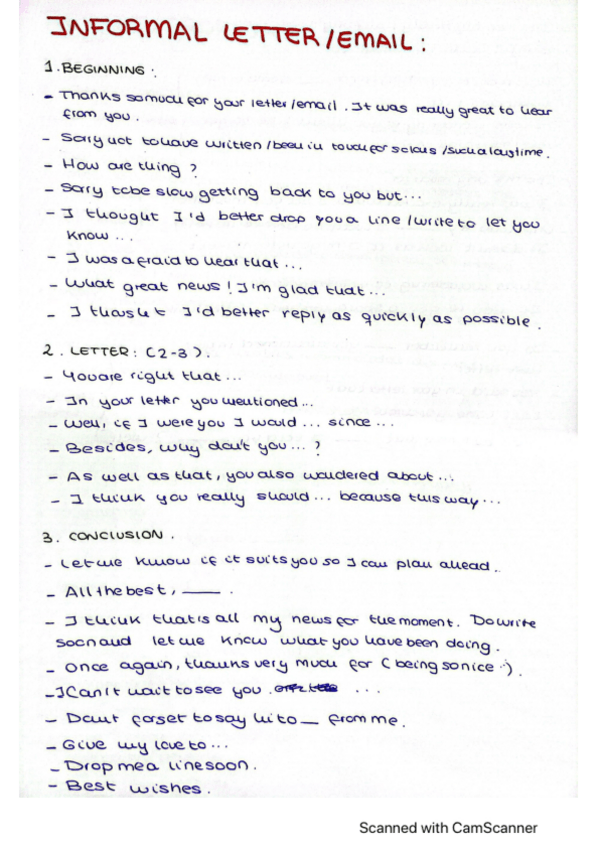 INFORMAL LETTER/EMAIL:
1. BEGINNING.
- Thanks so much for your letter/email. It was really great to hear
from you.
- Sorry not to have written/been in touch for so long/such a long time.
- How are thing?
- Sorry to be slow getting back to you but...
- I thought I'd better drop you a line/write to let you
know...
- I was afraid to hear that...
- What great news! I'm glad that...
- I thought I'd better reply as quickly as possible.
2. LETTER: (2-3).
- You are right that...
- In your letter you mentioned...
- Well, if I were you I would... since...
- Besides, why don't you...?
- As well as that, you also wondered about...
- I think you really should... because this way...
3. CONCLUSION.
- Let me know if it suits you so I can plan ahead.
- All the best, ____.
- I think that is all my news for the moment. Do write
soon and let me know what you have been doing.
- Once again, thanks very much for (being so nice :)).
- I can't wait to see you. ...
- Don't forget to say hi to __ from me.
- Give my love to...
- Drop me a line soon.
- Best wishes.
Scanned with CamScanner